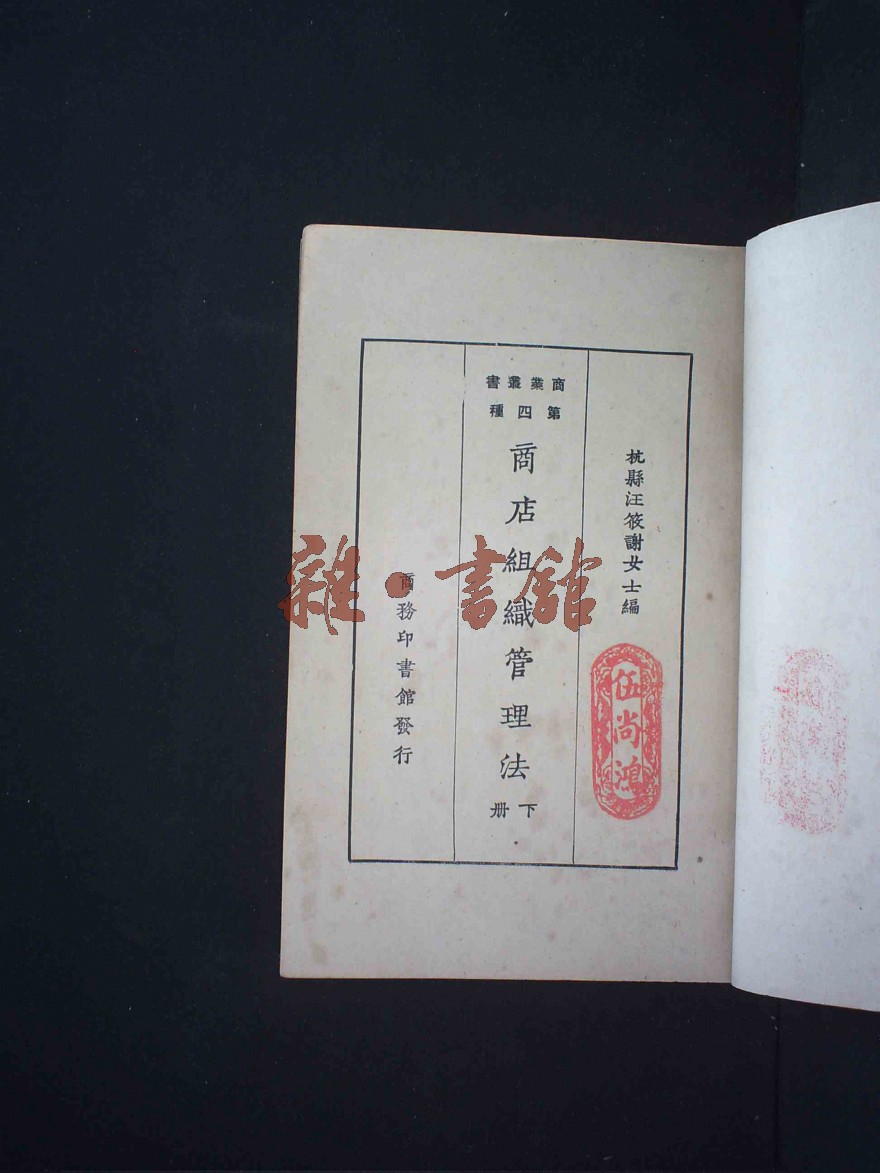 杭縣汪筱謝女士編
伍尚鴻
商業叢書
第四種
商店組織管理法
下册
商務印書館發行
雜·書館